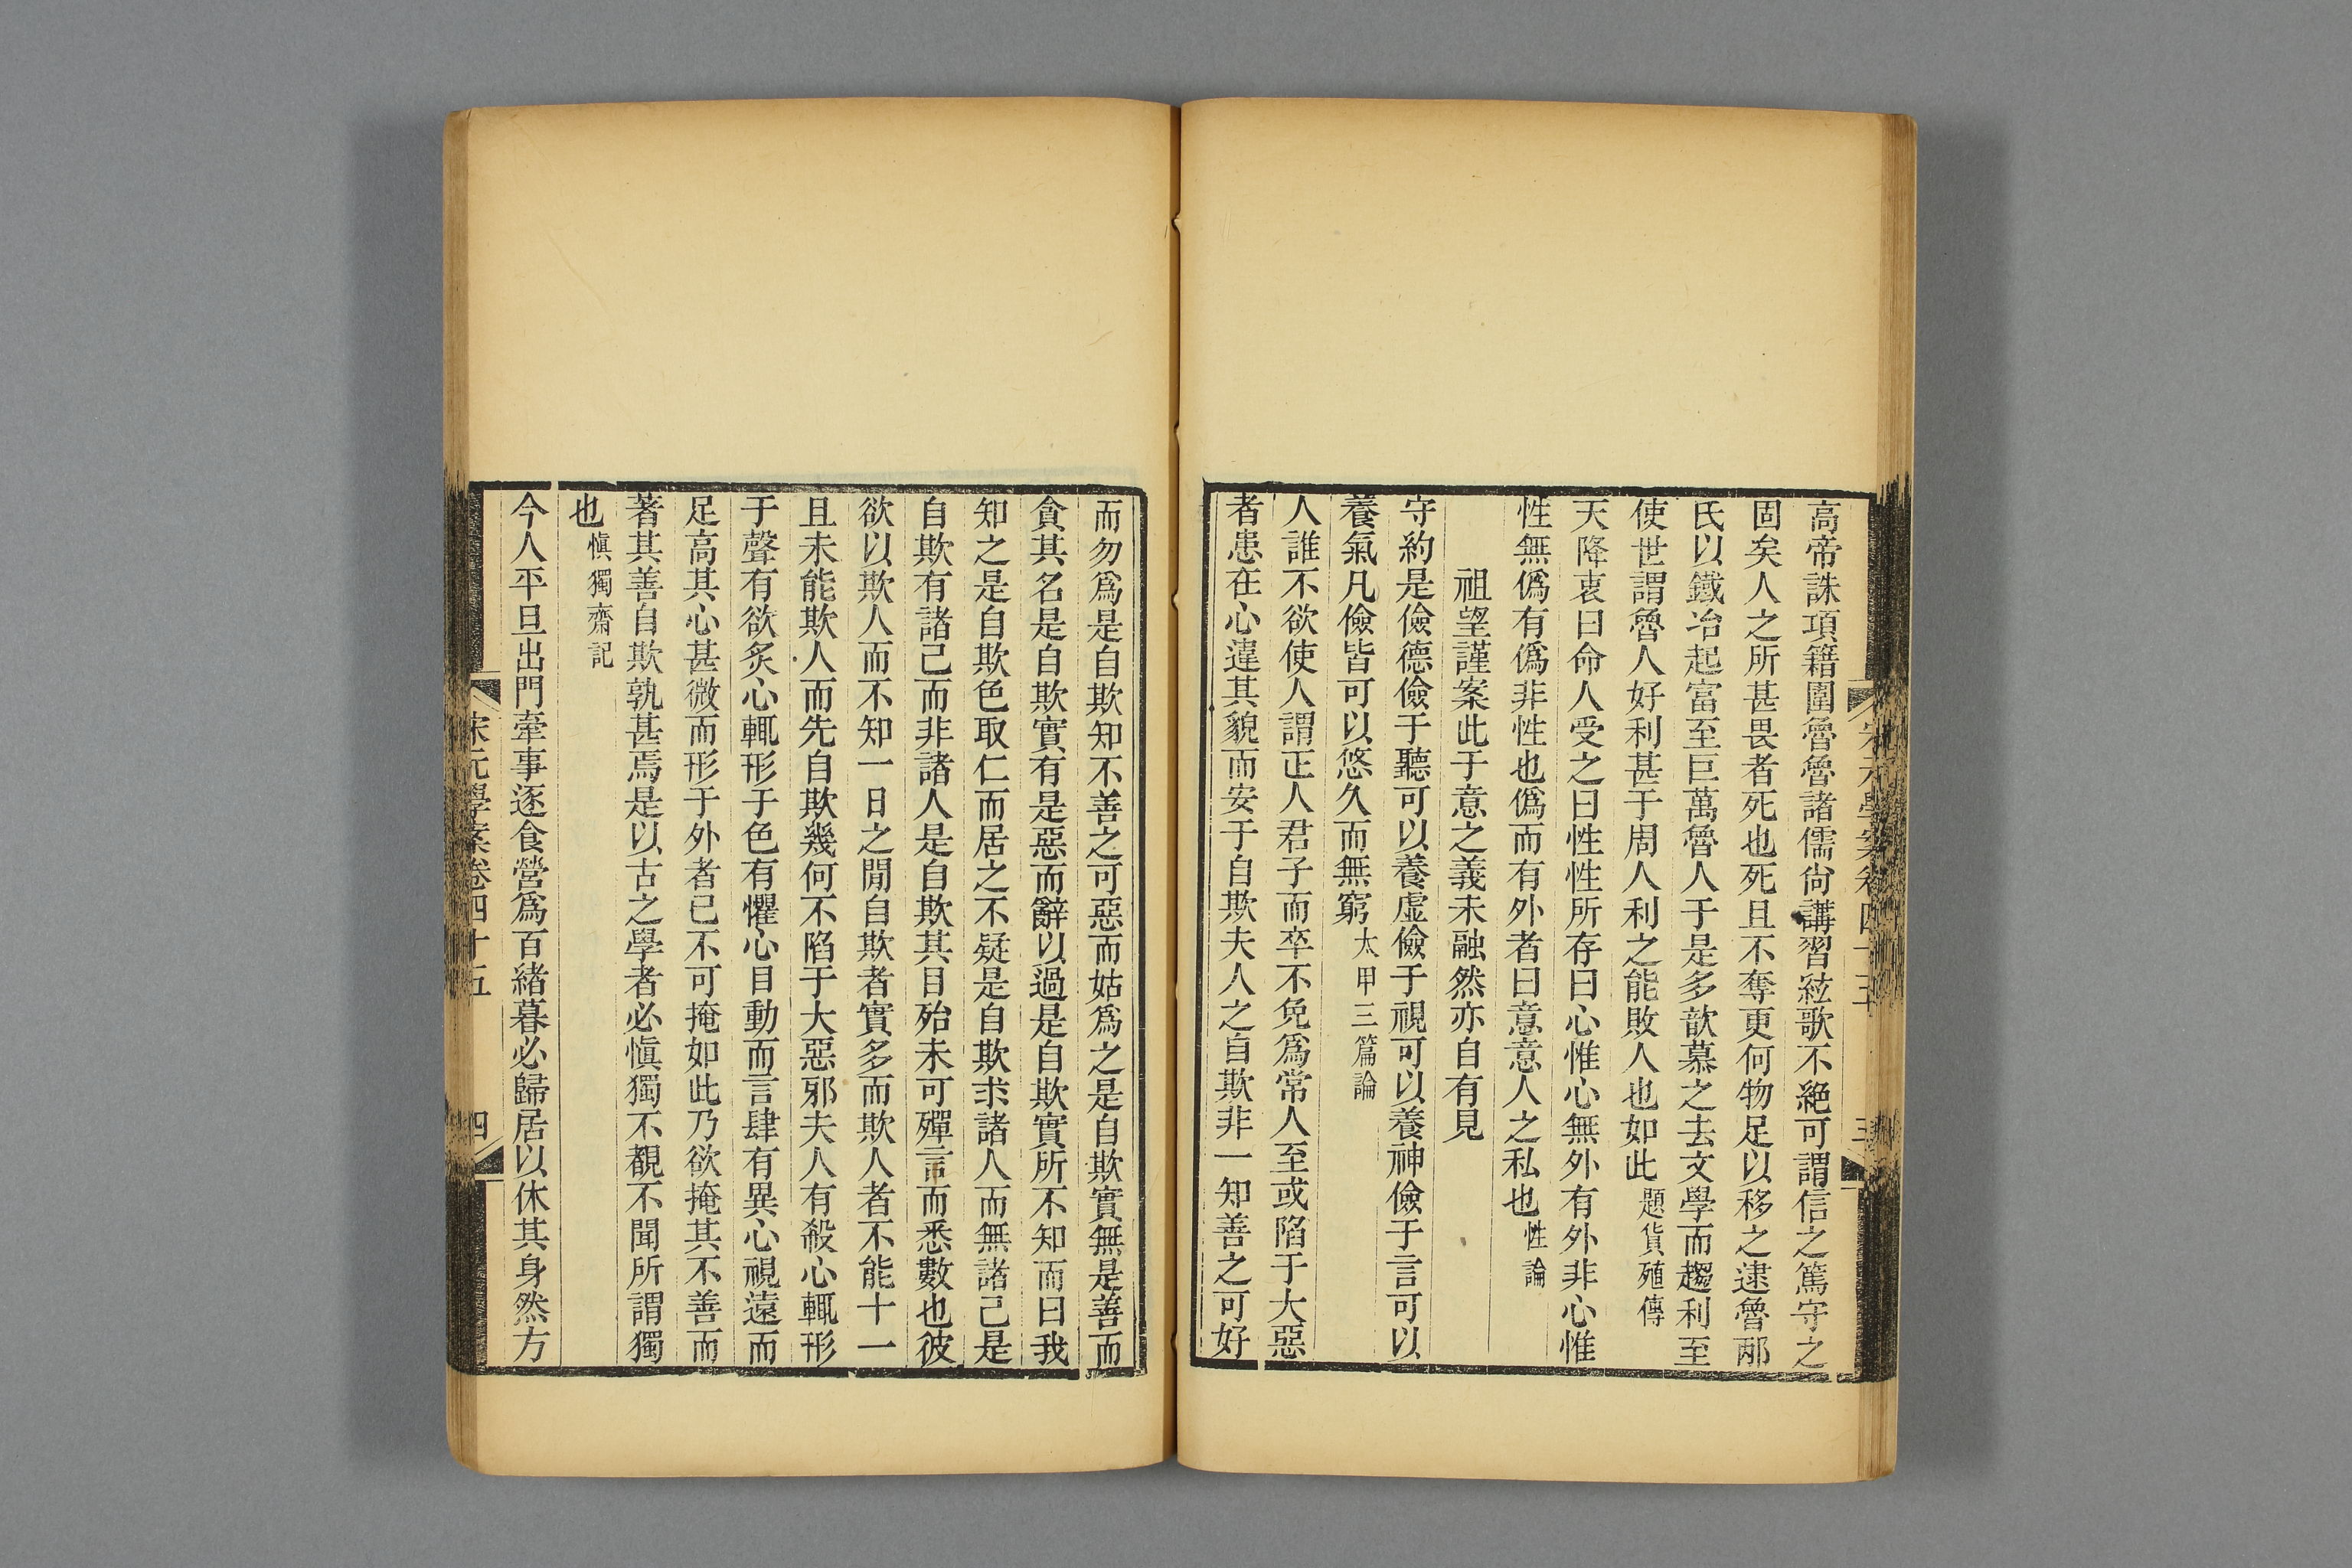 高帝誅項籍圍魯魯諸儒尙講習絃歌不絶可謂信之篤守之
固矣人之所甚畏者死也死且不奪更何物足以移之逮魯邴
氏以鐵冶起富至巨萬魯人于是多歆慕之去文學而趨利至
使世謂魯人好利甚于周人利之能敗人也如此題貨殖傳
天降衷曰命人受之曰性性所存曰心惟心無外有外非心惟
性無僞有僞非性也僞而有外者曰意意人之私也性論
祖望謹案此于意之義未融然亦自有見
守約是儉德儉于聽可以養虚儉于視可以養神儉于言可以
養氣凡儉皆可以悠久而無窮太甲三篇論
人誰不欲使人謂正人君子而卒不免爲常人至或陷于大惡
者患在心違其貌而安于自欺夫人之自欺非一知善之可好
而勿爲是自欺知不善之可惡而姑爲之是自欺實無是善而
貪其名是自欺實有是惡而辭以過是自欺實所不知而曰我
知之是自欺色取仁而居之不疑是自欺求諸人而無諸己是
自欺有諸己而非諸人是自欺其目殆未可殫言而悉數也彼
欲以欺人而不知一日之閒自欺者實多而欺人者不能十一
且未能欺人而先自欺幾何不陷于大惡邪夫人有殺心輒形
于聲有欲炙心輒形于色有懼心目動而言肆有異心視遠而
足高其心甚微而形于外者已不可掩如此乃欲掩其不善而
著其善自欺孰甚焉是以古之學者必愼獨不覩不聞所謂獨
也愼獨齋記
今人平旦出門牽事逐食營爲百緒暮必歸居以休其身然方
宋元學案卷四十五
四